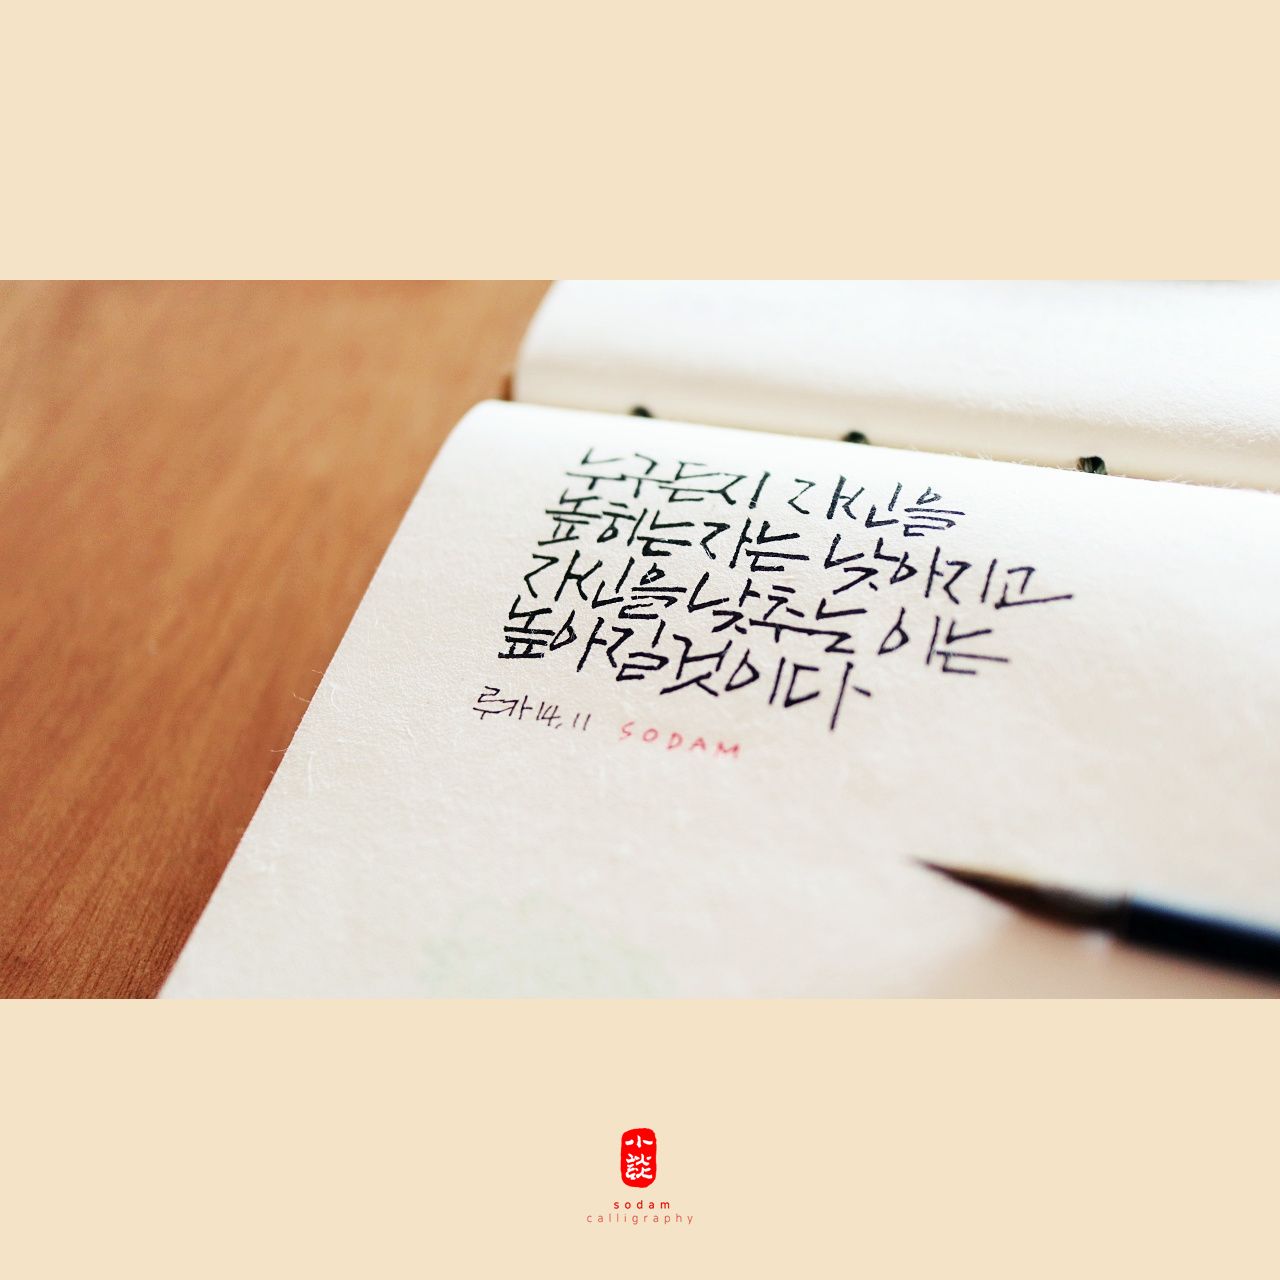 누구든지 자신을
높히는 자는 낮아지고
자신을 낮추는 이는
높아질 것이다
루카 14, 11 SODAM
小談
sodam
calligraphy